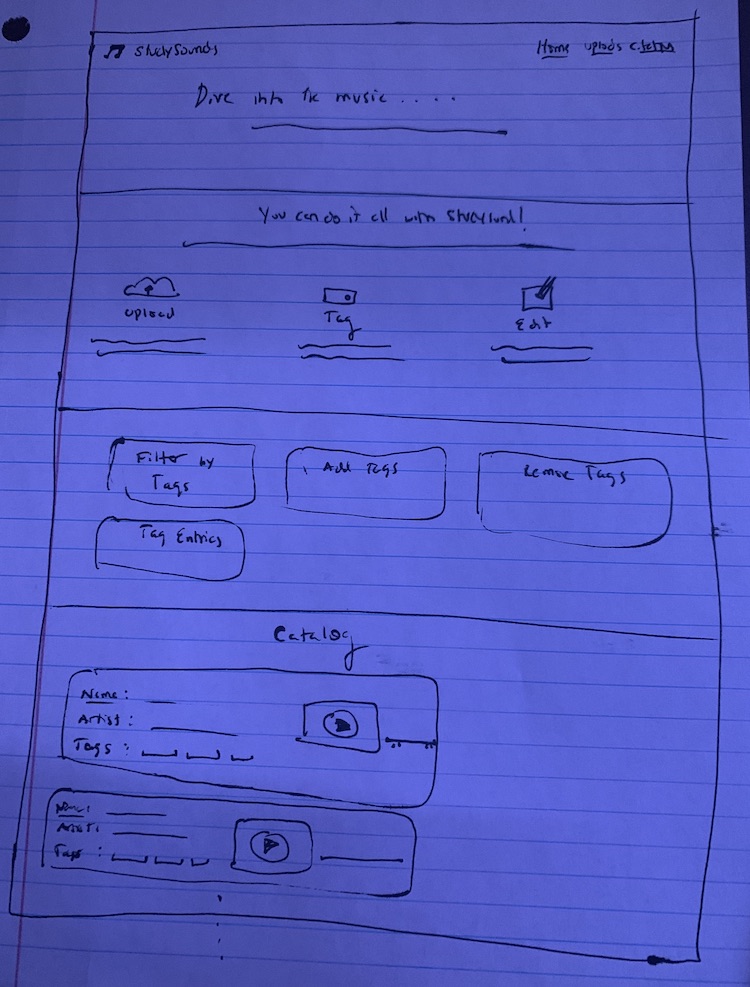 StudySounds
Home uploads
Dive into the music . . . . .
You can do it all with
Upload
Tag
Edit
Filter by
Tags
Add Tags
Remove Tags
Tag Entries
Catalog
Name :
Artist :
Tags :
Name :
Artist :
Tags :